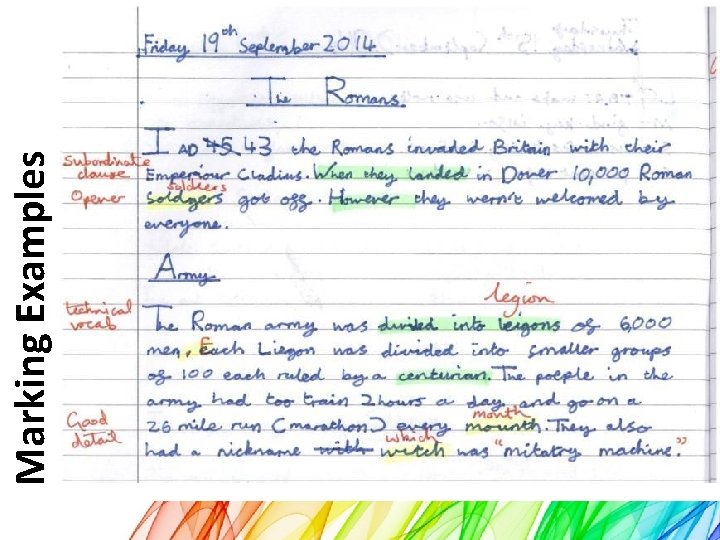 Marking Examples
Friday 19th September 2014
The Romans
I AD 45 43 the Romans invaded Britain with their
Subordinate clause
Emperiour Cladius. When they landed in Dover 10,000 Roman
soldiers
Opener
Soldgers got off. However they wern't welcomed by
everyone.
Army
legion
technical vocab
The Roman army was divided into leigons of 6,000
men, Each Liegon was divided into smaller groups
of 100 each ruled by a centurian. The poeple in the
army had too train 2hours a day and go on a
month
Good detail
26 mile run (marathon) every mounth. They also
which
had a nickname with witch was "mitatry machine."